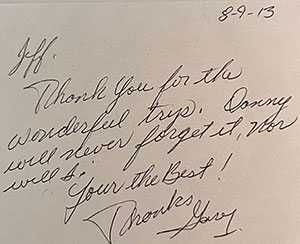 8-9-13
Jeff.
Thank You for the
wonderful trip. Danny
will never forget it, nor
will I.
Your the Best!
Thanks
Gary